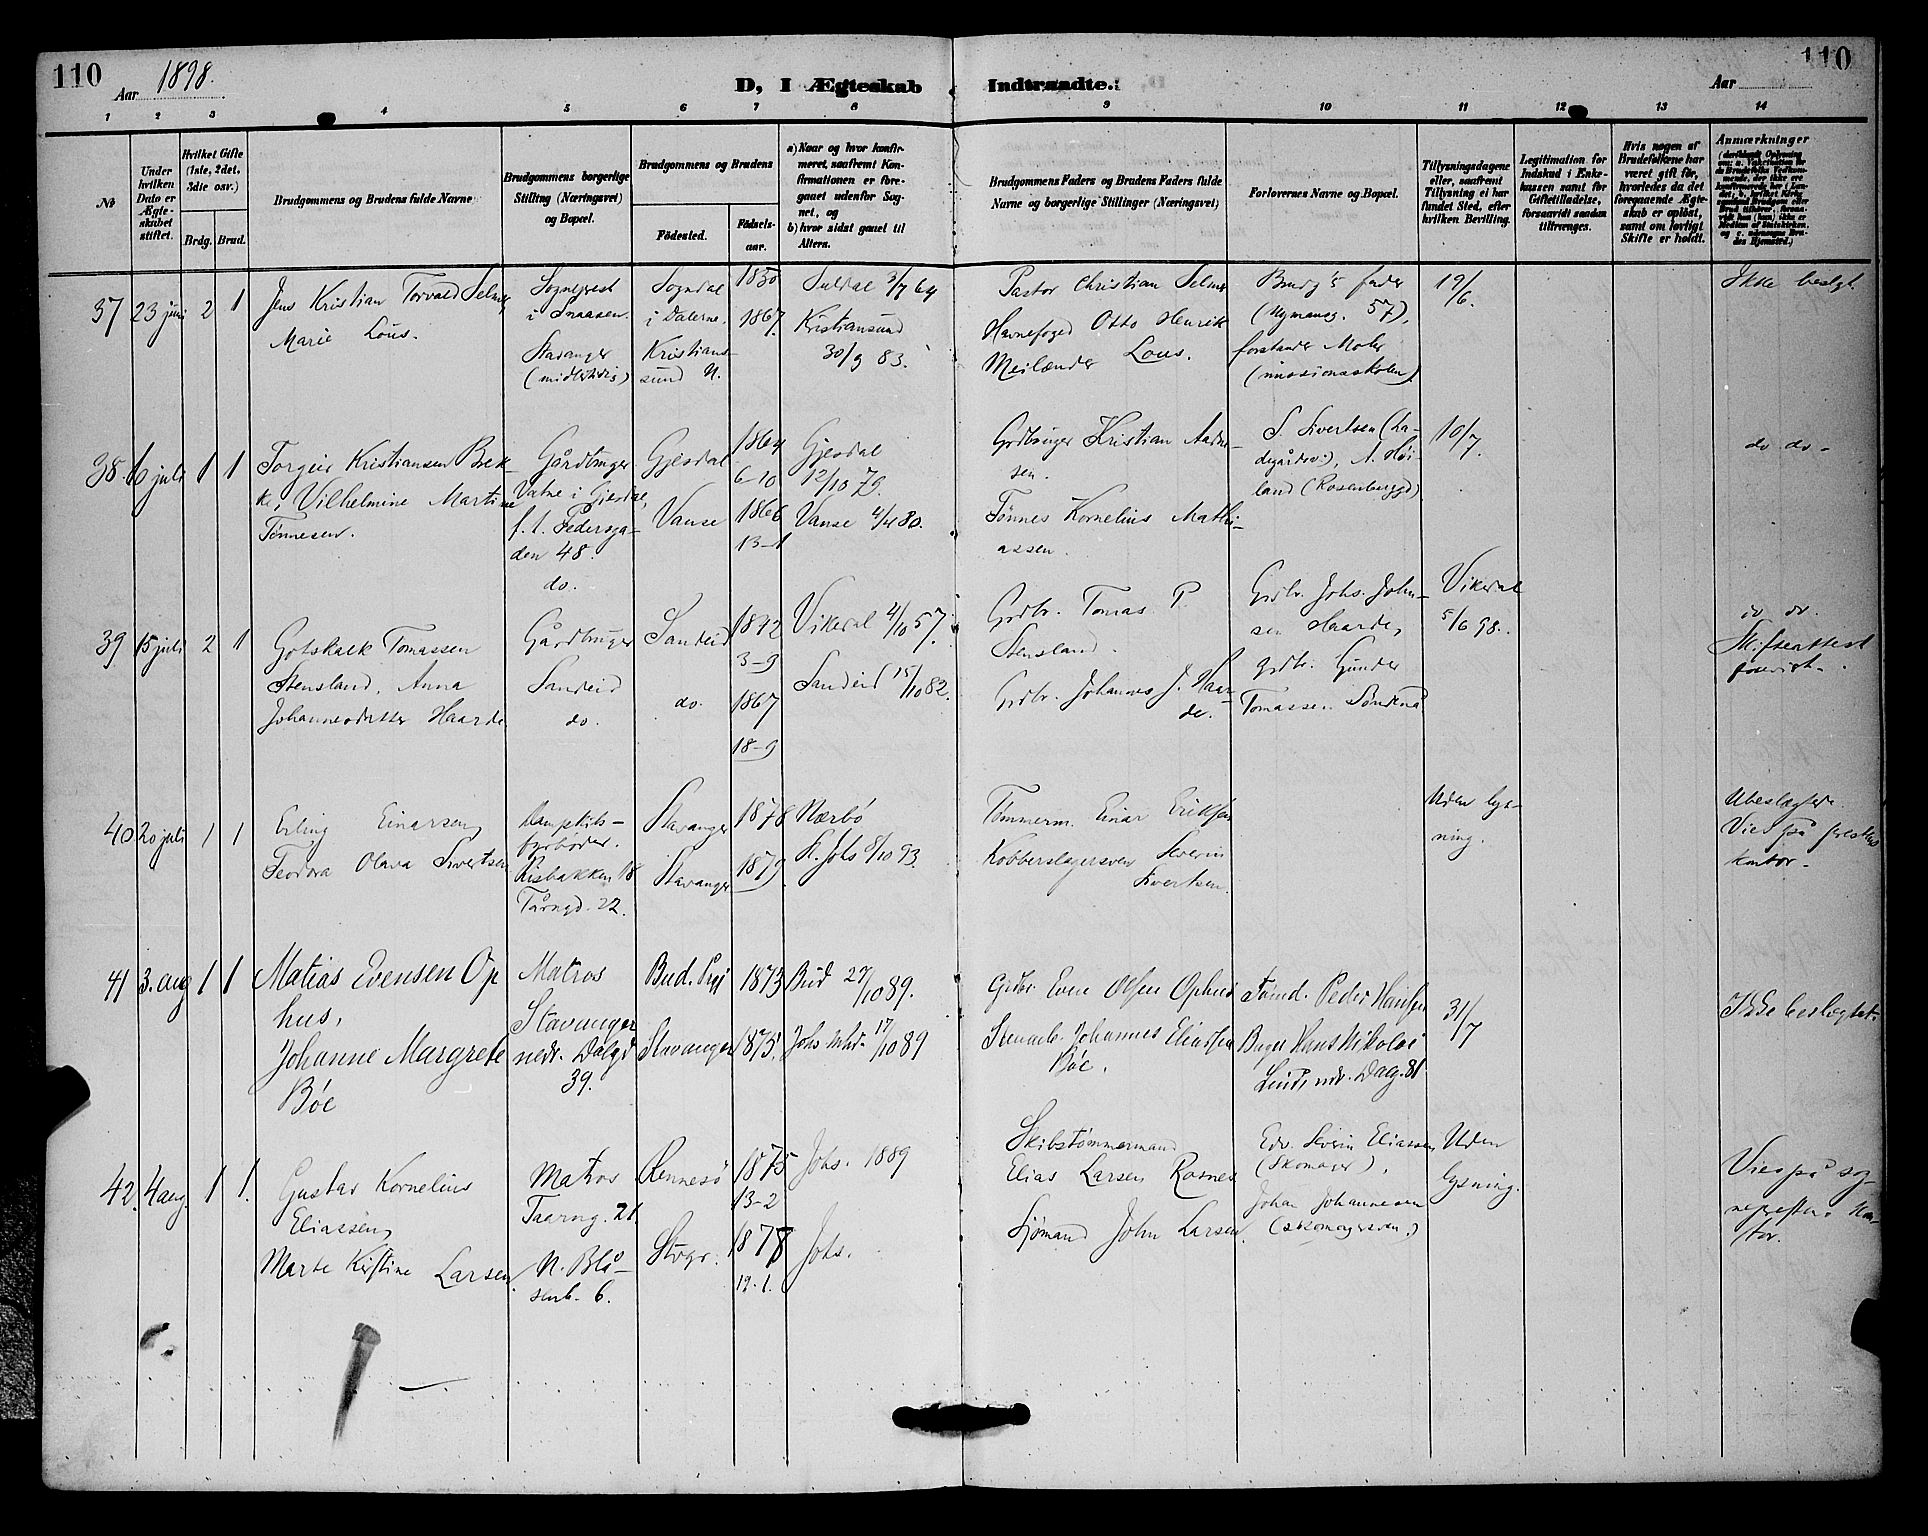 110
Aar 1898.
D, I Ægteskab Indtraadte.
Aar
110
1 2 3 4 5 6 7 8 9 10 11 12 13 14
No
Under hvilken Dato er Ægteskabet stiftet.
Hvilket Gifte (1ste, 2det, 3die osv.)
Brdg. Brud.
Brudgommens og Brudens fulde Navne
Brudgommens borgerlige Stilling (Næringsvei) og Bopæl.
Brudgommens og Brudens
Fødested.
Fødselsaar.
a) Naar og hvor konfirmeret, saafremt Konfirmationen er foregaaet udenfor Sognet, og
b) hvor sidst gaaet til Alters.
Brudgommens Faders og Brudens Faders fulde Navne og borgerlige Stillinger (Næringsvei)
Forlovernes Navne og Bopæl.
Tillysningsdagene eller, saafremt Tillysning ei har fundet Sted, efter hvilken Bevilling.
Legitimation for Indskud i Enkekassen samt for Giftetilladelse, forsaavidt saadan tiltrænges.
Hvis nogen af Brudefolkene har været gift før, hvorledes da det foregaaende Ægteskab er opløst, samt om lovligt Skifte er holdt.
Anmærkninger
37 23 juni 2 1
Jens Kristian Torvald Selmer
Marie Lous.
Sogneprest
i Snaasen.
Stavanger
(midlertidig)
Sogndal
i Dalerne.
Kristians-
sund N.
1850
1867.
Suldal 3/7 64
Kristiansund
30/9 83.
Pastor Christian Selmer
Havnefoged Otto Henrik
Meilænder Lous.
Brudg's fader
(Nymansg. 57),
forstander
(missionsskolen)
19/6.
Ikke beslgt.
38 6 juli 1 1
Torgeir Kristiansen Brek-
ke, Vilhelmine Martine
Tønnesen.
Gårdbruger
Vatne i Gjesdal,
f. t. Pedersga-
den 48.
do.
Gjesdal
Vanse
1864
6-10
1866
13-1
Gjesdal
12/10 79.
Vanse 4/4 80.
Grdbruger Kristian Aadne-
sen.
Tønnes Kornelius Mathi-
assen.
S. Sivertsen (La-
degårdsv.), A. Høi-
land (Rosenberggd)
10/7.
do do-
39 15 juli 2 1
Gotskalk Tomassen
Stensland, Anna
Johannesdatter Haarde
Gårdbruger
Sandeid
do.
Sandeid
do.
1842
3-9
1867
18-9
Vikedal 4/10 57.
Sandeid 15/10 82.
Grdbr. Tomas P.
Stensland.
Grdbr. Johannes J. Haar-
de.
Grdbr. Johs. John-
sen Haarde,
grdbr. Gunder
Tomassen
Vikedal
5/6 98.
do do.
Skifteattest
forevist.
40 20 juli 1 1
Erling Einarsen,
Teodora Olava Sivertsen
Dampskibs-
fyrbøder.
Risbakken 18
Tårngd. 22.
Stavanger
Stavanger
1878
1879
Nærbø
St. Johs 8/10 93.
Tømmerm. Einar Eriksen
Kobberslagersven Severin
Sivertsen.
Uden lys-
ning.
Ubeslægtede.
Viet på prestens
kontor.
41 3. aug 1 1
Matias Evensen Op
hus,
Johanne Margrete
Bóe
Matros
Stavanger
nedr. Dalgd
39.
Bud. Prgj
Stavanger
1873
1875.
Bud 27/10 89.
Johs mhd. 17/10 89
Grdbr. Even Olsen Ophus
Stenarb. Johannes Eliassen
Bóe.
Tømd. Peder Hansen
Bager Hans Nikolai
Lund, ndr. Dalg. 81
31/7
Ikke beslægtet.
42. 4 aug. 1 1.
Gustav Kornelius
Eliassen,
Marte Kirstine Larsen.
Matros
Taarng. 21.
N. Blå-
senb. 6.
Rennesö
Stvgr.
1875
13-2
1878
12-1.
Johs. 1889
Johs.
Skibstömmermand
Elias Larsen Rosnes
Sjömand John Larsen.
Edv. Severin Eliassen
(Skomager),
Johan Johannesen
(skomagersven.)
Uden
lysning.
Viet på sog-
neprestens kon-
tor.